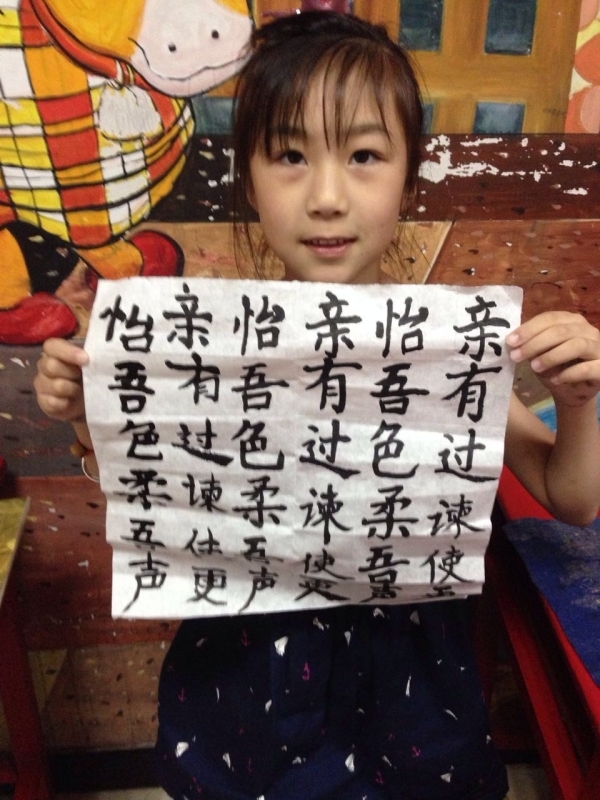 亲有过谏使
怡吾色柔吾声
亲有过谏使更
怡吾色柔五声
亲有过谏使更
怡吾色柔五声